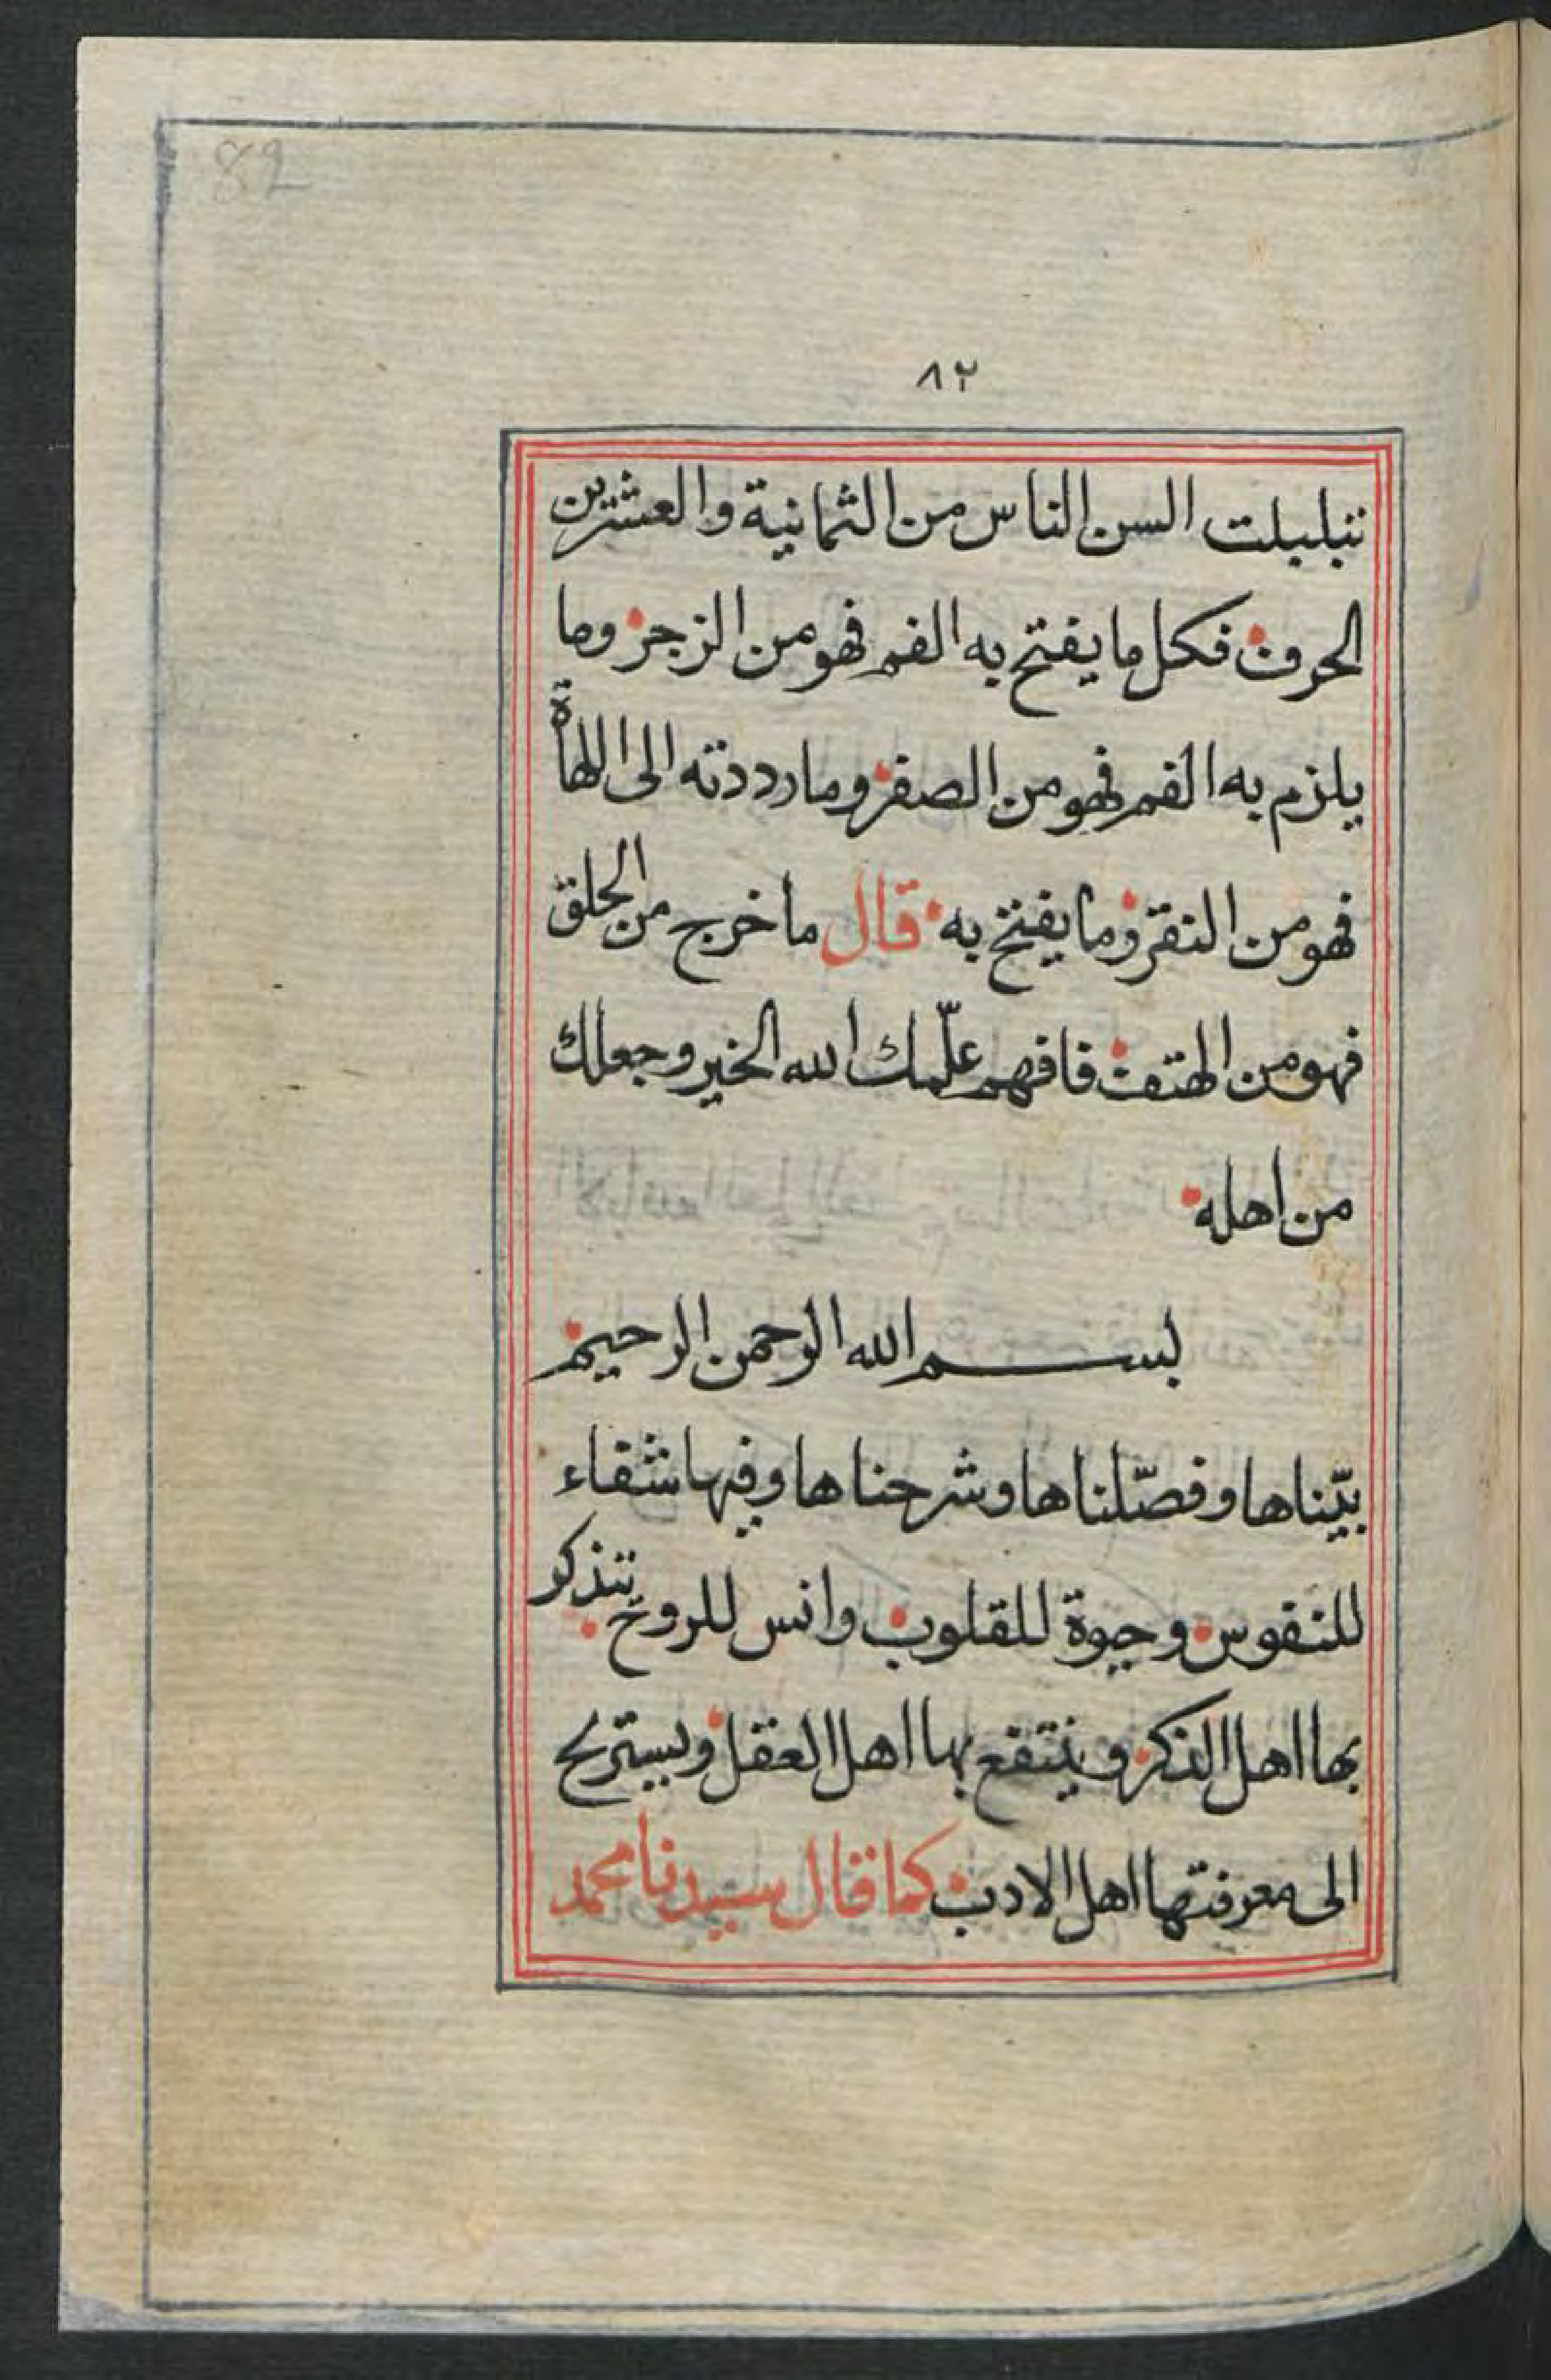 82
٨٢
تبلبلت السن الناس من الثمانية والعشرين
الحرف فكل ما يفتح به الفم فهو من الزجر وما
يلزم به الفم فهو من الصفر وما رددته الى اللهاة
فهو من النقر وما يفتح به قال ما خرج من الحلق
فهو من الهتف فافهم علّمك الله الخير وجعلك
من اهله
بسم الله الرحمن الرحيم
بيّناها وفصّلناها وشرحناها وفيها شفاء
للنفوس وحيوة للقلوب وانس للروح تتذكر
بها اهل الذكر وينتفع بها اهل العقل ويستريح
الى معرفتها اهل الادب كما قال سيدنا محمد